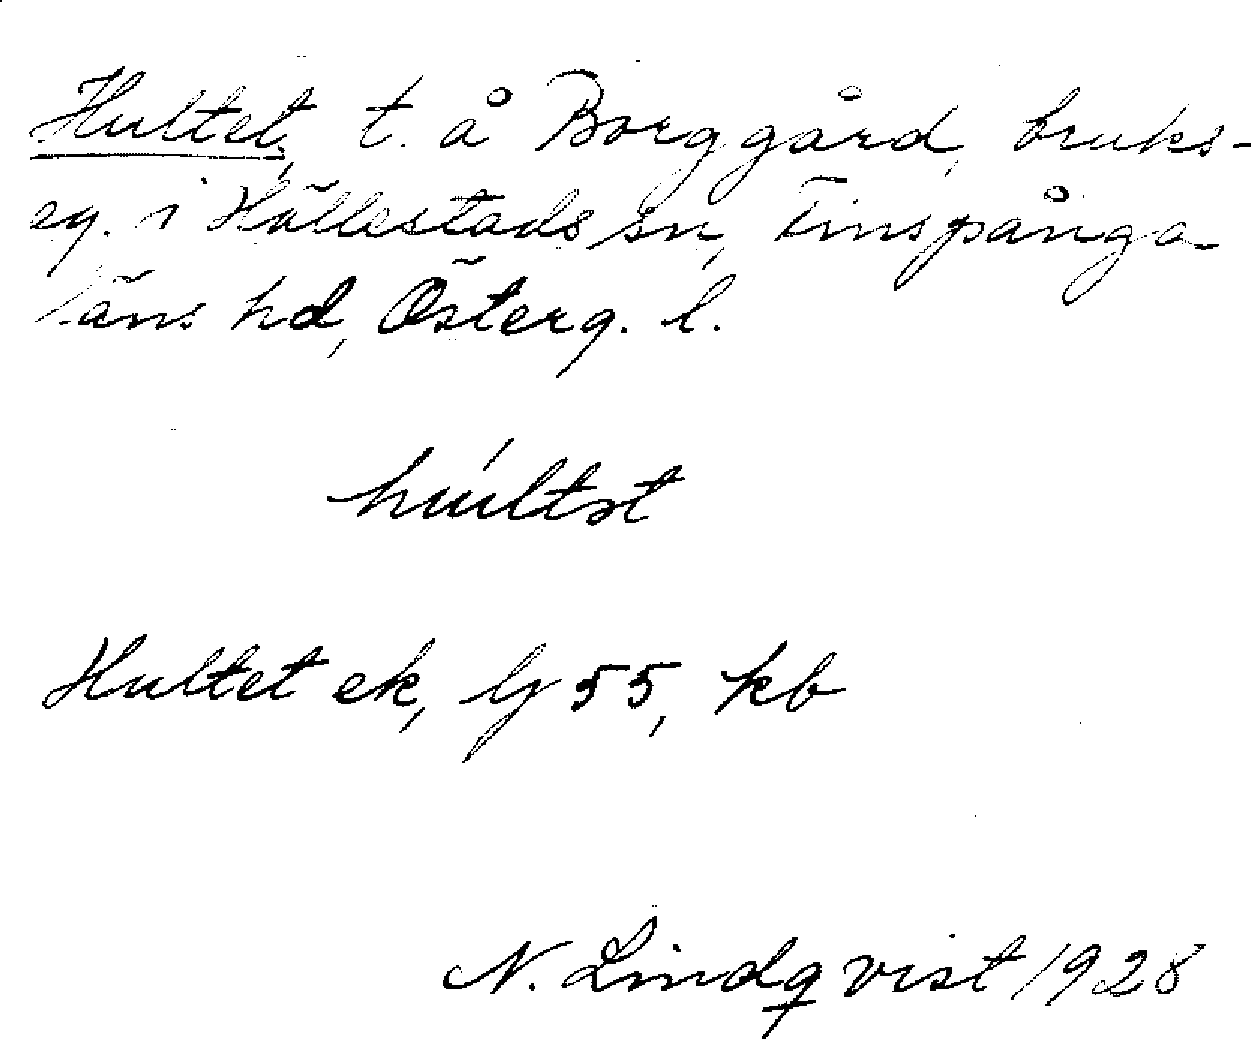 Hultet, t. å Borggård, bruks-
eg. i Hällestads sn, Finspånga
läns hd, Österg. l.
húltət
Hultet ek, lj 55, kb
N. Lindqvist 1928